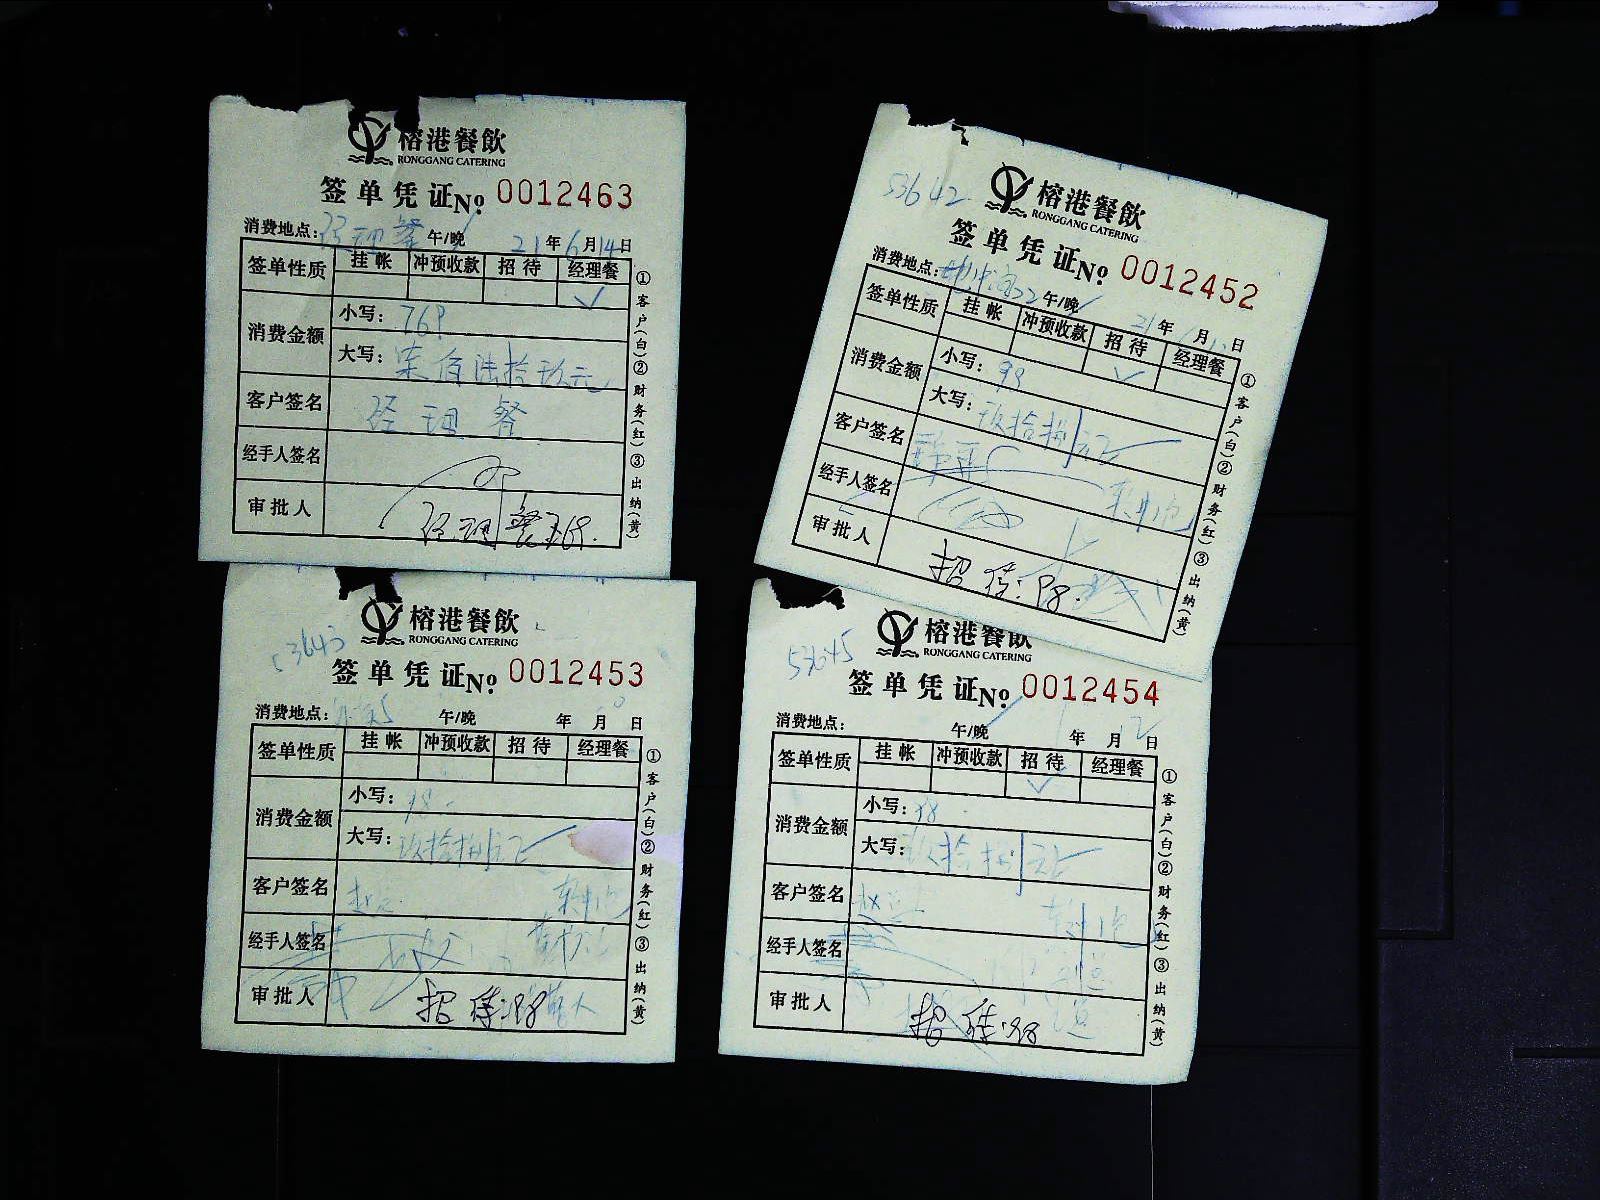 榕港餐飲
RONGGANG CATERING
签单凭证 No 0012463
消费地点: 经理餐 午/晚 21年6月14日
签单性质 挂帐 冲预收款 招待 经理餐
✓
消费金额 小写: 769
大写: 柒佰陆拾玖元
客户签名 经理餐
经手人签名
审批人 经理餐769.
①客户(白)②财务(红)③出纳(黄)
53642
榕港餐飲
RONGGANG CATERING
签单凭证 No 0012452
消费地点: 午/晚 21年 月 日
签单性质 挂帐 冲预收款 招待 经理餐
✓
消费金额 小写: 98
大写: 玖拾捌元
客户签名
经手人签名
审批人 招待:98.
①客户(白)②财务(红)③出纳(黄)
53643
榕港餐飲
RONGGANG CATERING
签单凭证 No 0012453
消费地点: 午/晚 年 月 日
签单性质 挂帐 冲预收款 招待 经理餐
消费金额 小写: 98.
大写: 玖拾捌元
客户签名
经手人签名
审批人 招待:98
①客户(白)②财务(红)③出纳(黄)
53645
榕港餐飲
RONGGANG CATERING
签单凭证 No 0012454
消费地点: 午/晚 年 月 12日
签单性质 挂帐 冲预收款 招待 经理餐
✓
消费金额 小写: 98.
大写: 玖拾捌元
客户签名
经手人签名
审批人 招待:98
①客户(白)②财务(红)③出纳(黄)